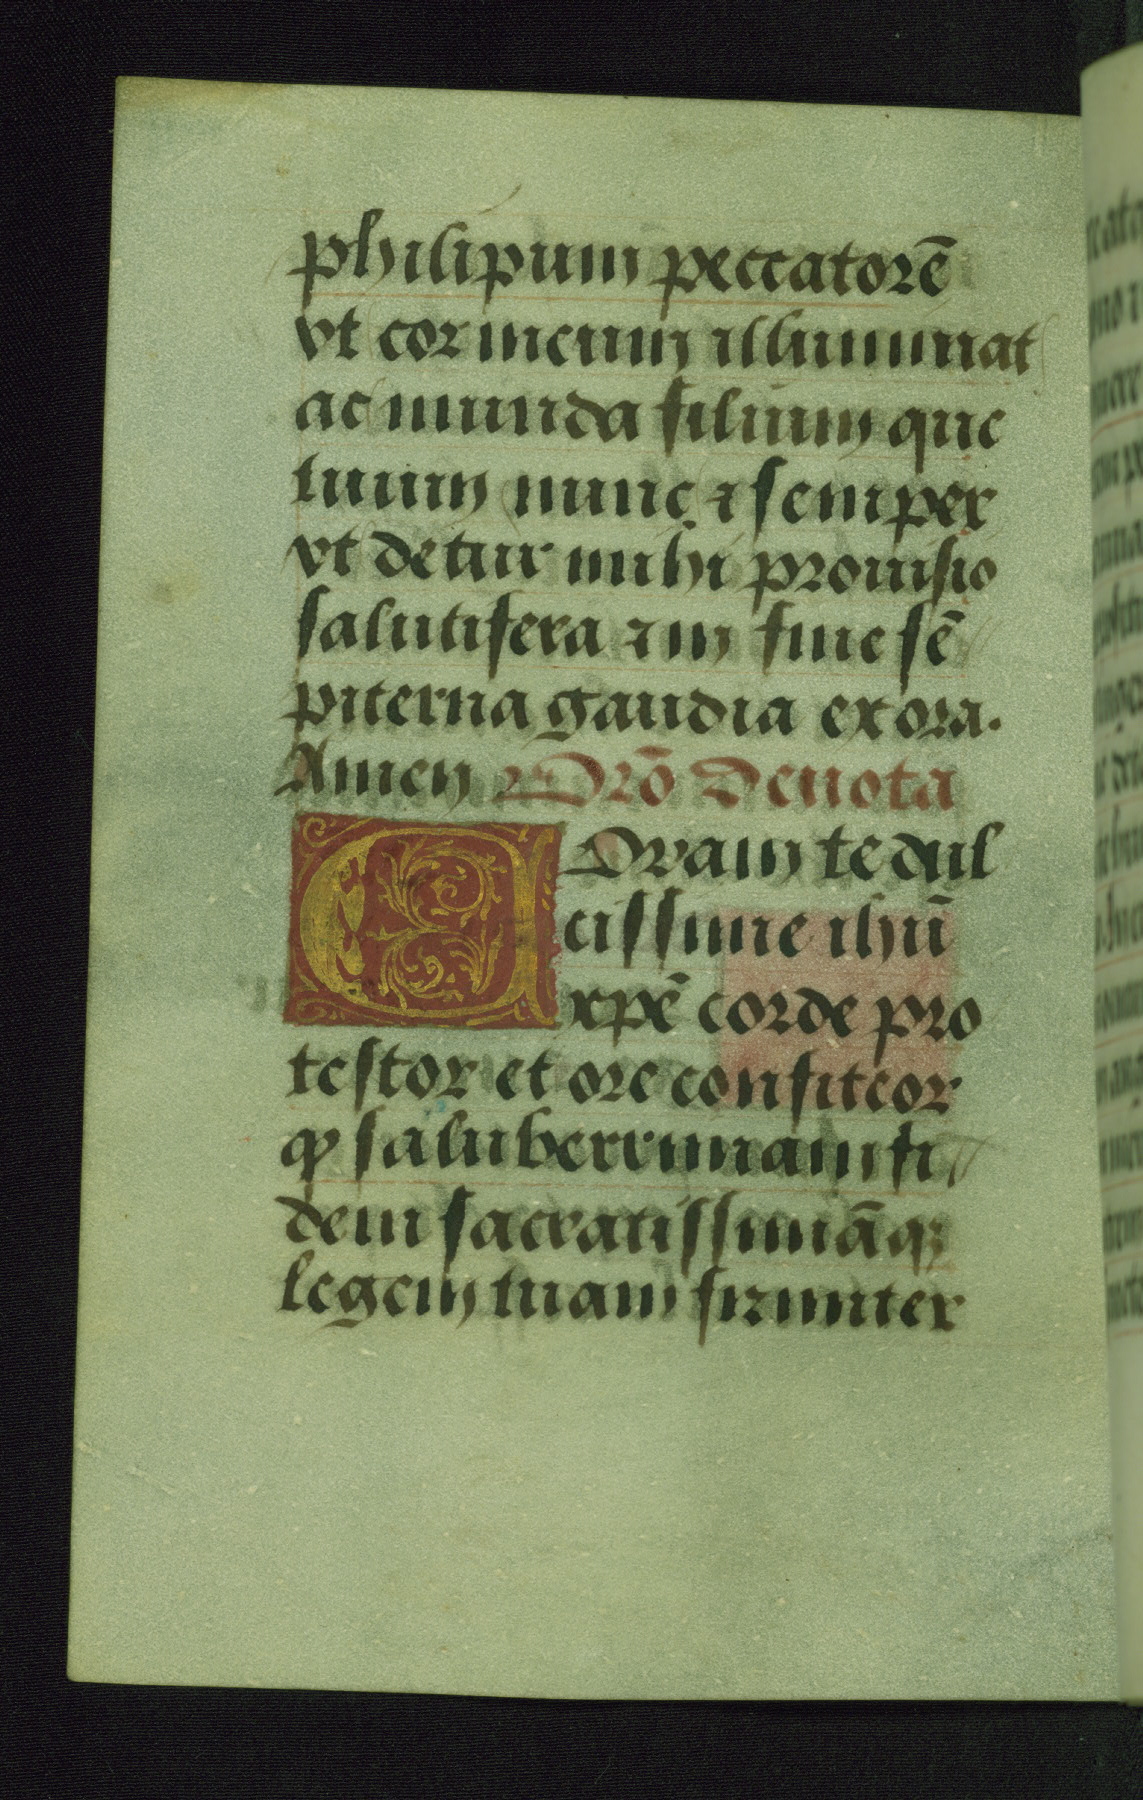 philipum peccatorē
vt cor meum illuminat
ac munda filium que
tuum nunc ⁊ semper
vt detur mihi prouisio
salutifera ⁊ in fine sē
piterna gaudia exora.
Amen Orō Deuota
Coram te dul
cissime ihū
xpē corde pro
testor et ore confiteor
ꝙ saluberrimam fi
dem sacratissimāqꝫ
legem tuam firmiter